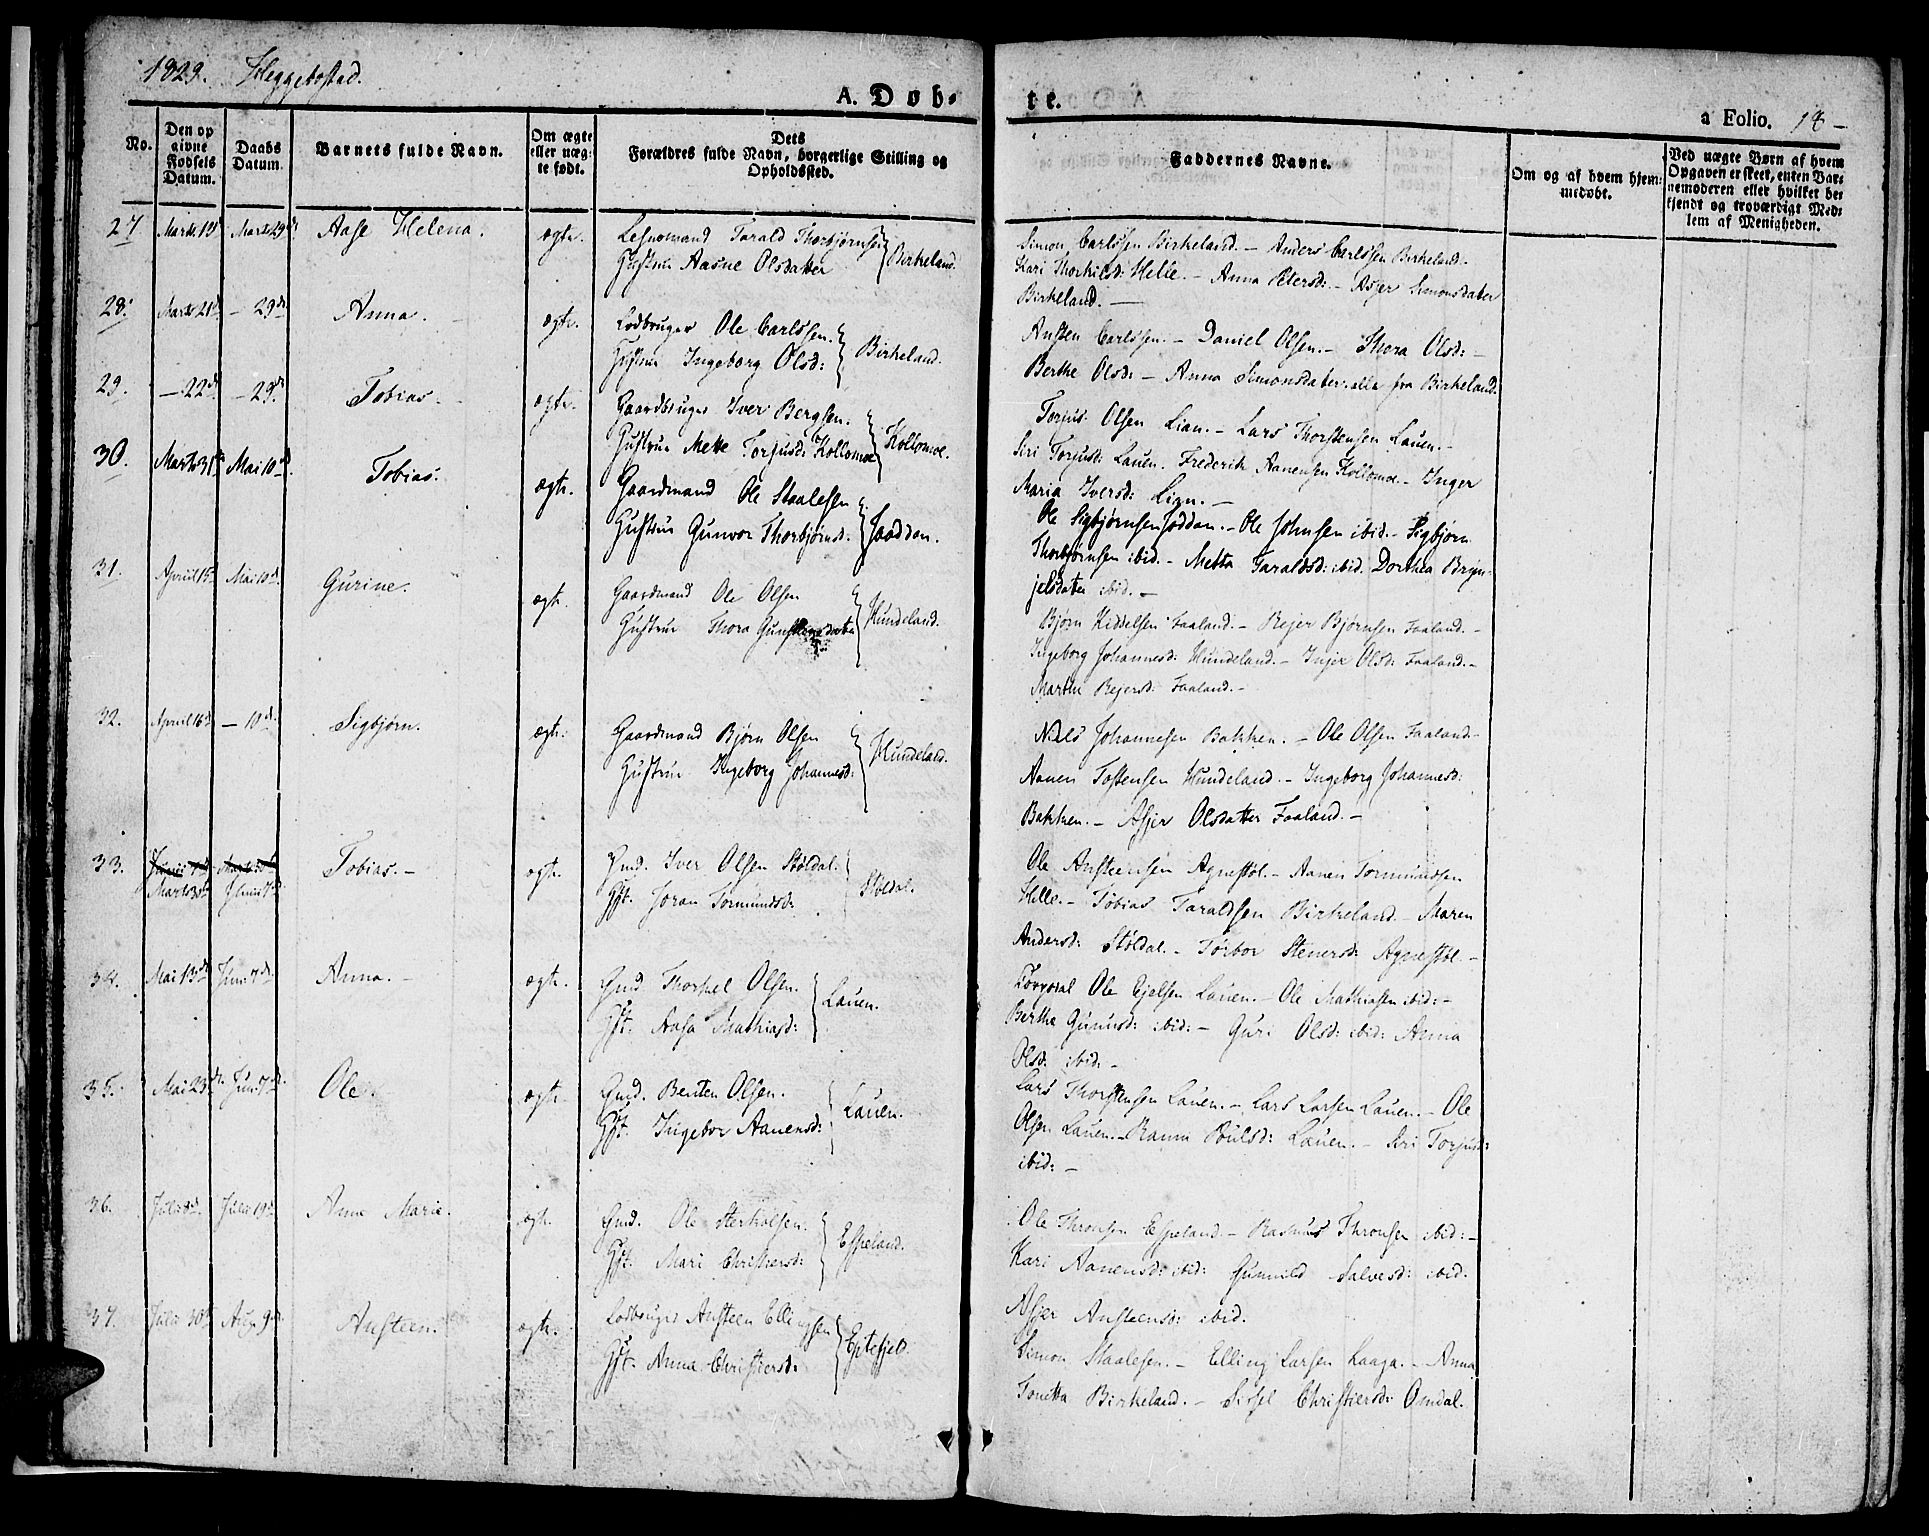 1829. Heggebostad.
A. Døb-
te.
a Folio. 18-
No.
Den op
givne
Fødsels
Datum.
Daabs
Datum.
Barnets fulde Navn.
Om ægte
eller uæg-
te født.
Dets
Forældres fulde Navn, borgerlige Stilling og
Opholdssted.
Faddernes Navne.
Om og af hvem hjem-
medøbt.
Ved uægte Børn af hvem
Opgaven er skeet, enten Bar-
nemoderen eller hvilket be-
kjendt og troværdigt Med-
lem af Menigheden.
27 Marts Marts 29 Aase Helena. ægte. Tarald Thorbjørnsen
Hustrue Aasne Olsdatter Birkeland.
Simon Carlssen Birkeland. - Anders Carlssen Birkeland.
Kari Thorkilsd: Helle. - Anna Petersd: - Asjer Simonsdater
Birkeland. -
28. Marts 21 - 29d Anna. ægte. Ole Carlssen.
Hustrue Ingeborg Olsd: Birkeland.
Austen Carlssen. - Daniel Olsen. - Thora Olsd: -
Berthe Olsd: - Anna Simonsdater. alle fra Birkeland.
29. - 22d - 29d. Tobias. ægte. Gaardbruger Iver Bergsen.
Hustrue Mette Torjusd: Kollomoe Kollomoe.
Torjus Olsen Lian. - Lars Thorstensen Lauen. -
Siri Torjusd: Lauen. Frederik Aanensen Kollomoe. - Inger
Maria Iversd: Lian. -
30. Marts 31 Mai 10d. Tobias. ægte. Gaardmand Ole Staalesen
Hustrue Gunvor Thorbjørnsd: Joddan.
Ole Sigbjørnsen Joddan. - Ole Johnsen ibid. - Sigbjørn
Thorbjørnsen ibid. - Metta Taraldsd: ibid. Dorthea Bryn-
jelsdatter ibid. -
31. Apriil 15 Mai 10d. Gurine. ægte. Gaardmand Ole Olsen
Hustrue Thora Hundeland.
Bjørn Kiddelsen Faaland. - Rejer Bjørnsen Faaland. -
Ingeborg Johannesd: Hundeland. - Injer Olsd: Faaland. -
Marthe Rejersd: Faaland. -
32. Apriil 16d - 10d. Sigbjørn. ægte. Gaardmand Bjørn Olsen
Hustrue Ingeborg Johannesd: Hundeland.
Niels Johannesen Bakken. - Ole Olsen Faaland -
Aanen Tostensen Hundeland. - Ingeborg Johannesd:
Bakken. - Asjer Olsdatter Faaland. -
33. Marts 30 Junii 7d Tobias. - ægte. Gmd. Iver Olsen Støldal.
Hst. Joran Tormundsd: Støldal.
Ole Austeensen Agnestøl. - Aanen Tormundsen
Helle. - Tobias Taraldsen Birkeland. - Maren
Andersd: Støldal. - Torbor Stenersd: Agnestøl. -
34. Mai 13d Jun. 7d. Anna. - ægte. Gmd. Thorkel Olsen.
Hst. Aasa Mathiasd: Lauen.
Corporal Ole Ejelsen Lauen. - Ole Mathiasen ibid: -
Berthe Gunusd: ibid: - Guri Olsd: ibid: Anna
Olsd: ibid: -
35. Mai 23d. Jun. 7d. Ole. ægte. Gmd. Benten Olsen.
Hst. Ingebor Aanensd: Lauen.
Lars Thorstensen Lauen. - Lars Larsen Lauen. - Ole
Olsen Lauen. - Ranni Poulsd: Lauen. - Siri Torjusd:
ibid: -
36. Juli 8d. Juli 19d. Anne Marie. ægte. Gmd. Ole Sterkolsen.
Hst. Mari Christensd: Espeland.
Ole Thronsen Espeland. - Rasmus Thronsen ibid: -
Kari Aanensd: ibid: Gunnild Salvesd: ibid.
Asjer Austeensd: ibid.
37. Juli 30 Aug. 9d. Austeen. ægte. Austeen Ellingsen
Hst. Anna Christiersd: Eptefjeld.
Simon Staalesen. - Elling Larsen Laaga. - Anna
Tonetta Birkeland. - Sissel Christiersd: Omdal.